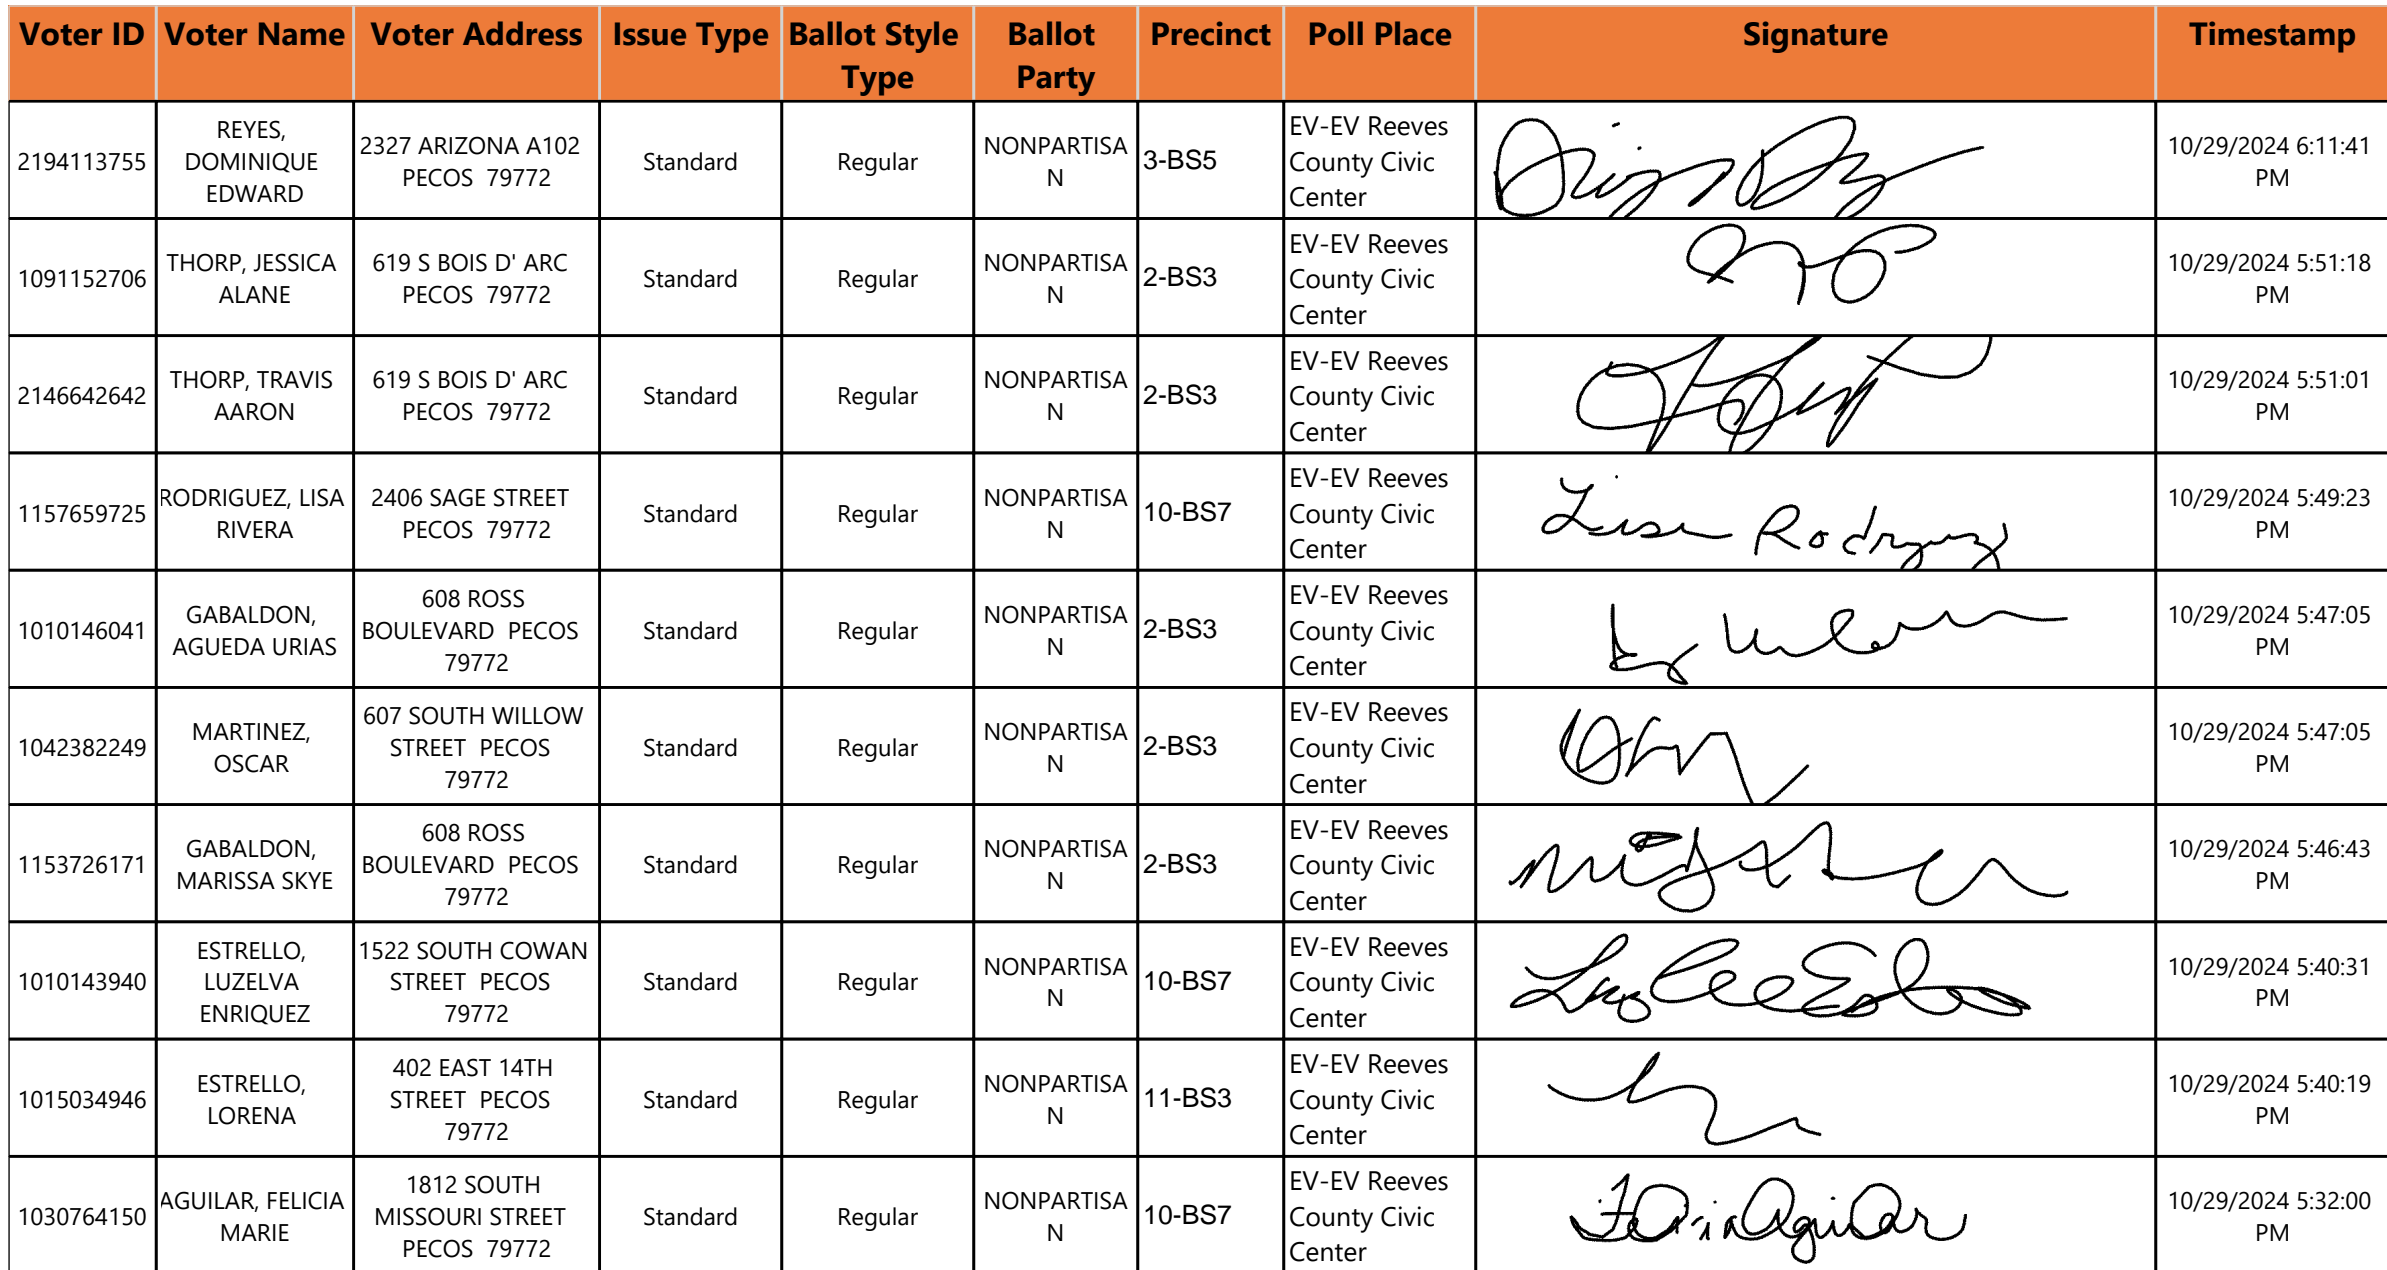 Voter ID Voter Name Voter Address Issue Type Ballot Style Type Ballot Party Precinct Poll Place Signature Timestamp
2194113755 REYES, DOMINIQUE EDWARD 2327 ARIZONA A102 PECOS 79772 Standard Regular NONPARTISAN 3-BS5 EV-EV Reeves County Civic Center 10/29/2024 6:11:41 PM
1091152706 THORP, JESSICA ALANE 619 S BOIS D' ARC PECOS 79772 Standard Regular NONPARTISAN 2-BS3 EV-EV Reeves County Civic Center 10/29/2024 5:51:18 PM
2146642642 THORP, TRAVIS AARON 619 S BOIS D' ARC PECOS 79772 Standard Regular NONPARTISAN 2-BS3 EV-EV Reeves County Civic Center 10/29/2024 5:51:01 PM
1157659725 RODRIGUEZ, LISA RIVERA 2406 SAGE STREET PECOS 79772 Standard Regular NONPARTISAN 10-BS7 EV-EV Reeves County Civic Center Lisa Rodriguez 10/29/2024 5:49:23 PM
1010146041 GABALDON, AGUEDA URIAS 608 ROSS BOULEVARD PECOS 79772 Standard Regular NONPARTISAN 2-BS3 EV-EV Reeves County Civic Center 10/29/2024 5:47:05 PM
1042382249 MARTINEZ, OSCAR 607 SOUTH WILLOW STREET PECOS 79772 Standard Regular NONPARTISAN 2-BS3 EV-EV Reeves County Civic Center 10/29/2024 5:47:05 PM
1153726171 GABALDON, MARISSA SKYE 608 ROSS BOULEVARD PECOS 79772 Standard Regular NONPARTISAN 2-BS3 EV-EV Reeves County Civic Center 10/29/2024 5:46:43 PM
1010143940 ESTRELLO, LUZELVA ENRIQUEZ 1522 SOUTH COWAN STREET PECOS 79772 Standard Regular NONPARTISAN 10-BS7 EV-EV Reeves County Civic Center 10/29/2024 5:40:31 PM
1015034946 ESTRELLO, LORENA 402 EAST 14TH STREET PECOS 79772 Standard Regular NONPARTISAN 11-BS3 EV-EV Reeves County Civic Center 10/29/2024 5:40:19 PM
1030764150 AGUILAR, FELICIA MARIE 1812 SOUTH MISSOURI STREET PECOS 79772 Standard Regular NONPARTISAN 10-BS7 EV-EV Reeves County Civic Center Felicia Aguilar 10/29/2024 5:32:00 PM